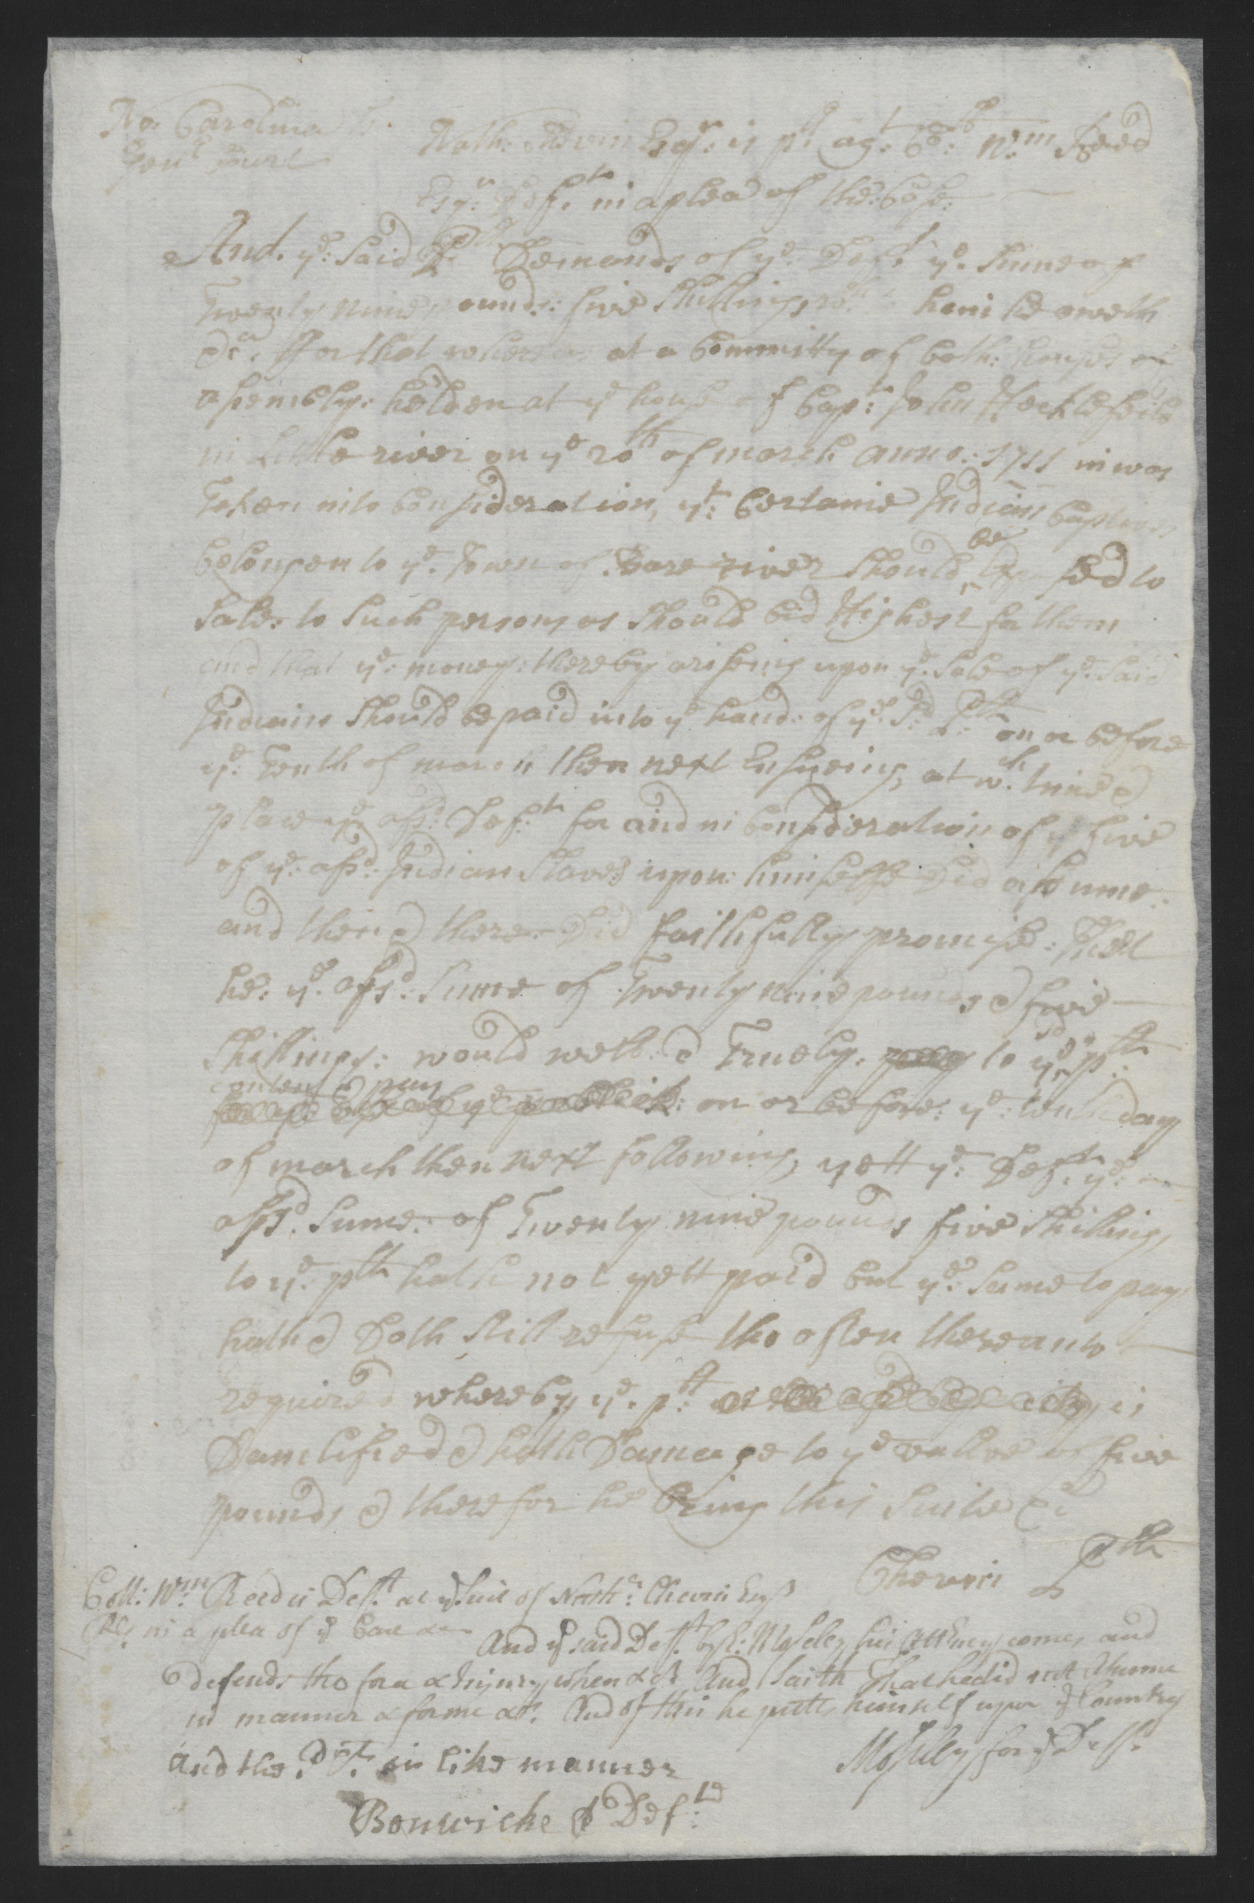 No. Carolina Ss.
Genll Court
Nath: Chevin Esqr: is plt agt: Coll: Wm: Reed
Esqr: Defts in a plea of the Case:
And. ye: Said Plt: Demands of ye: Deft ye. Sume of
Twenty Nine pounds: five Shillings, &c: he oweth
&ca. ffor that whereas at a Committy of both: houses of
assembly: holden at ye house of Capt: John Hecklefeild
in Little river on ye 20th of march anno: 1711 it was
Taken into Consideration, yt: Certaine Indian Captives
belongen to ye: Town of Bare river Should be Exposed to
Sale: to Such persons as Should bid Highest for them
and that ye: money: thereby ariseing upon ye: Sale of ye: said
Indians Should be paid into ye hands of ye: Sd: Plt: on or before
ye: Tenth of march then next Ensueing, at wch: time &
place ye afsd: Deft: for and in Consideration of five
of ye: afsd: Indian Slaves upon: himselfe Did assume:
and then & there Did faithfully promise: That
he: ye: afsd: Sume of Twenty nine pounds & five
Shillings: would well: & Truely: pay to ye sd: plt:
content & pay on or before: ye: tenth day
of march then next following, yett ye: Deft: ye:
afsd. Sume: of Twenty nine pounds five Shillings
to ye: plt hath not yett paid but ye: Same to pay
hath & Doth still refuse tho often thereunto
required whereby ye. plt: is
Damnified & hath Damage to ye vallue of five
pounds & therefor he bring this Suite &c
Chevin Plt
Coll: Wm: Reed is Deft. at ye suit of Nathl: Chevin Esqr
Plt in a plea of ye Case &c
And ye said Deft. by E: Moseley his Attorney comes and
defends the force & Injury when &c And Saith That he did not Assume
in manner & forme &c. And of this he putts himself upon ye Country
Moseley for ye Deft.
And the. Plt. in like manner
Bonwicke P Deft: